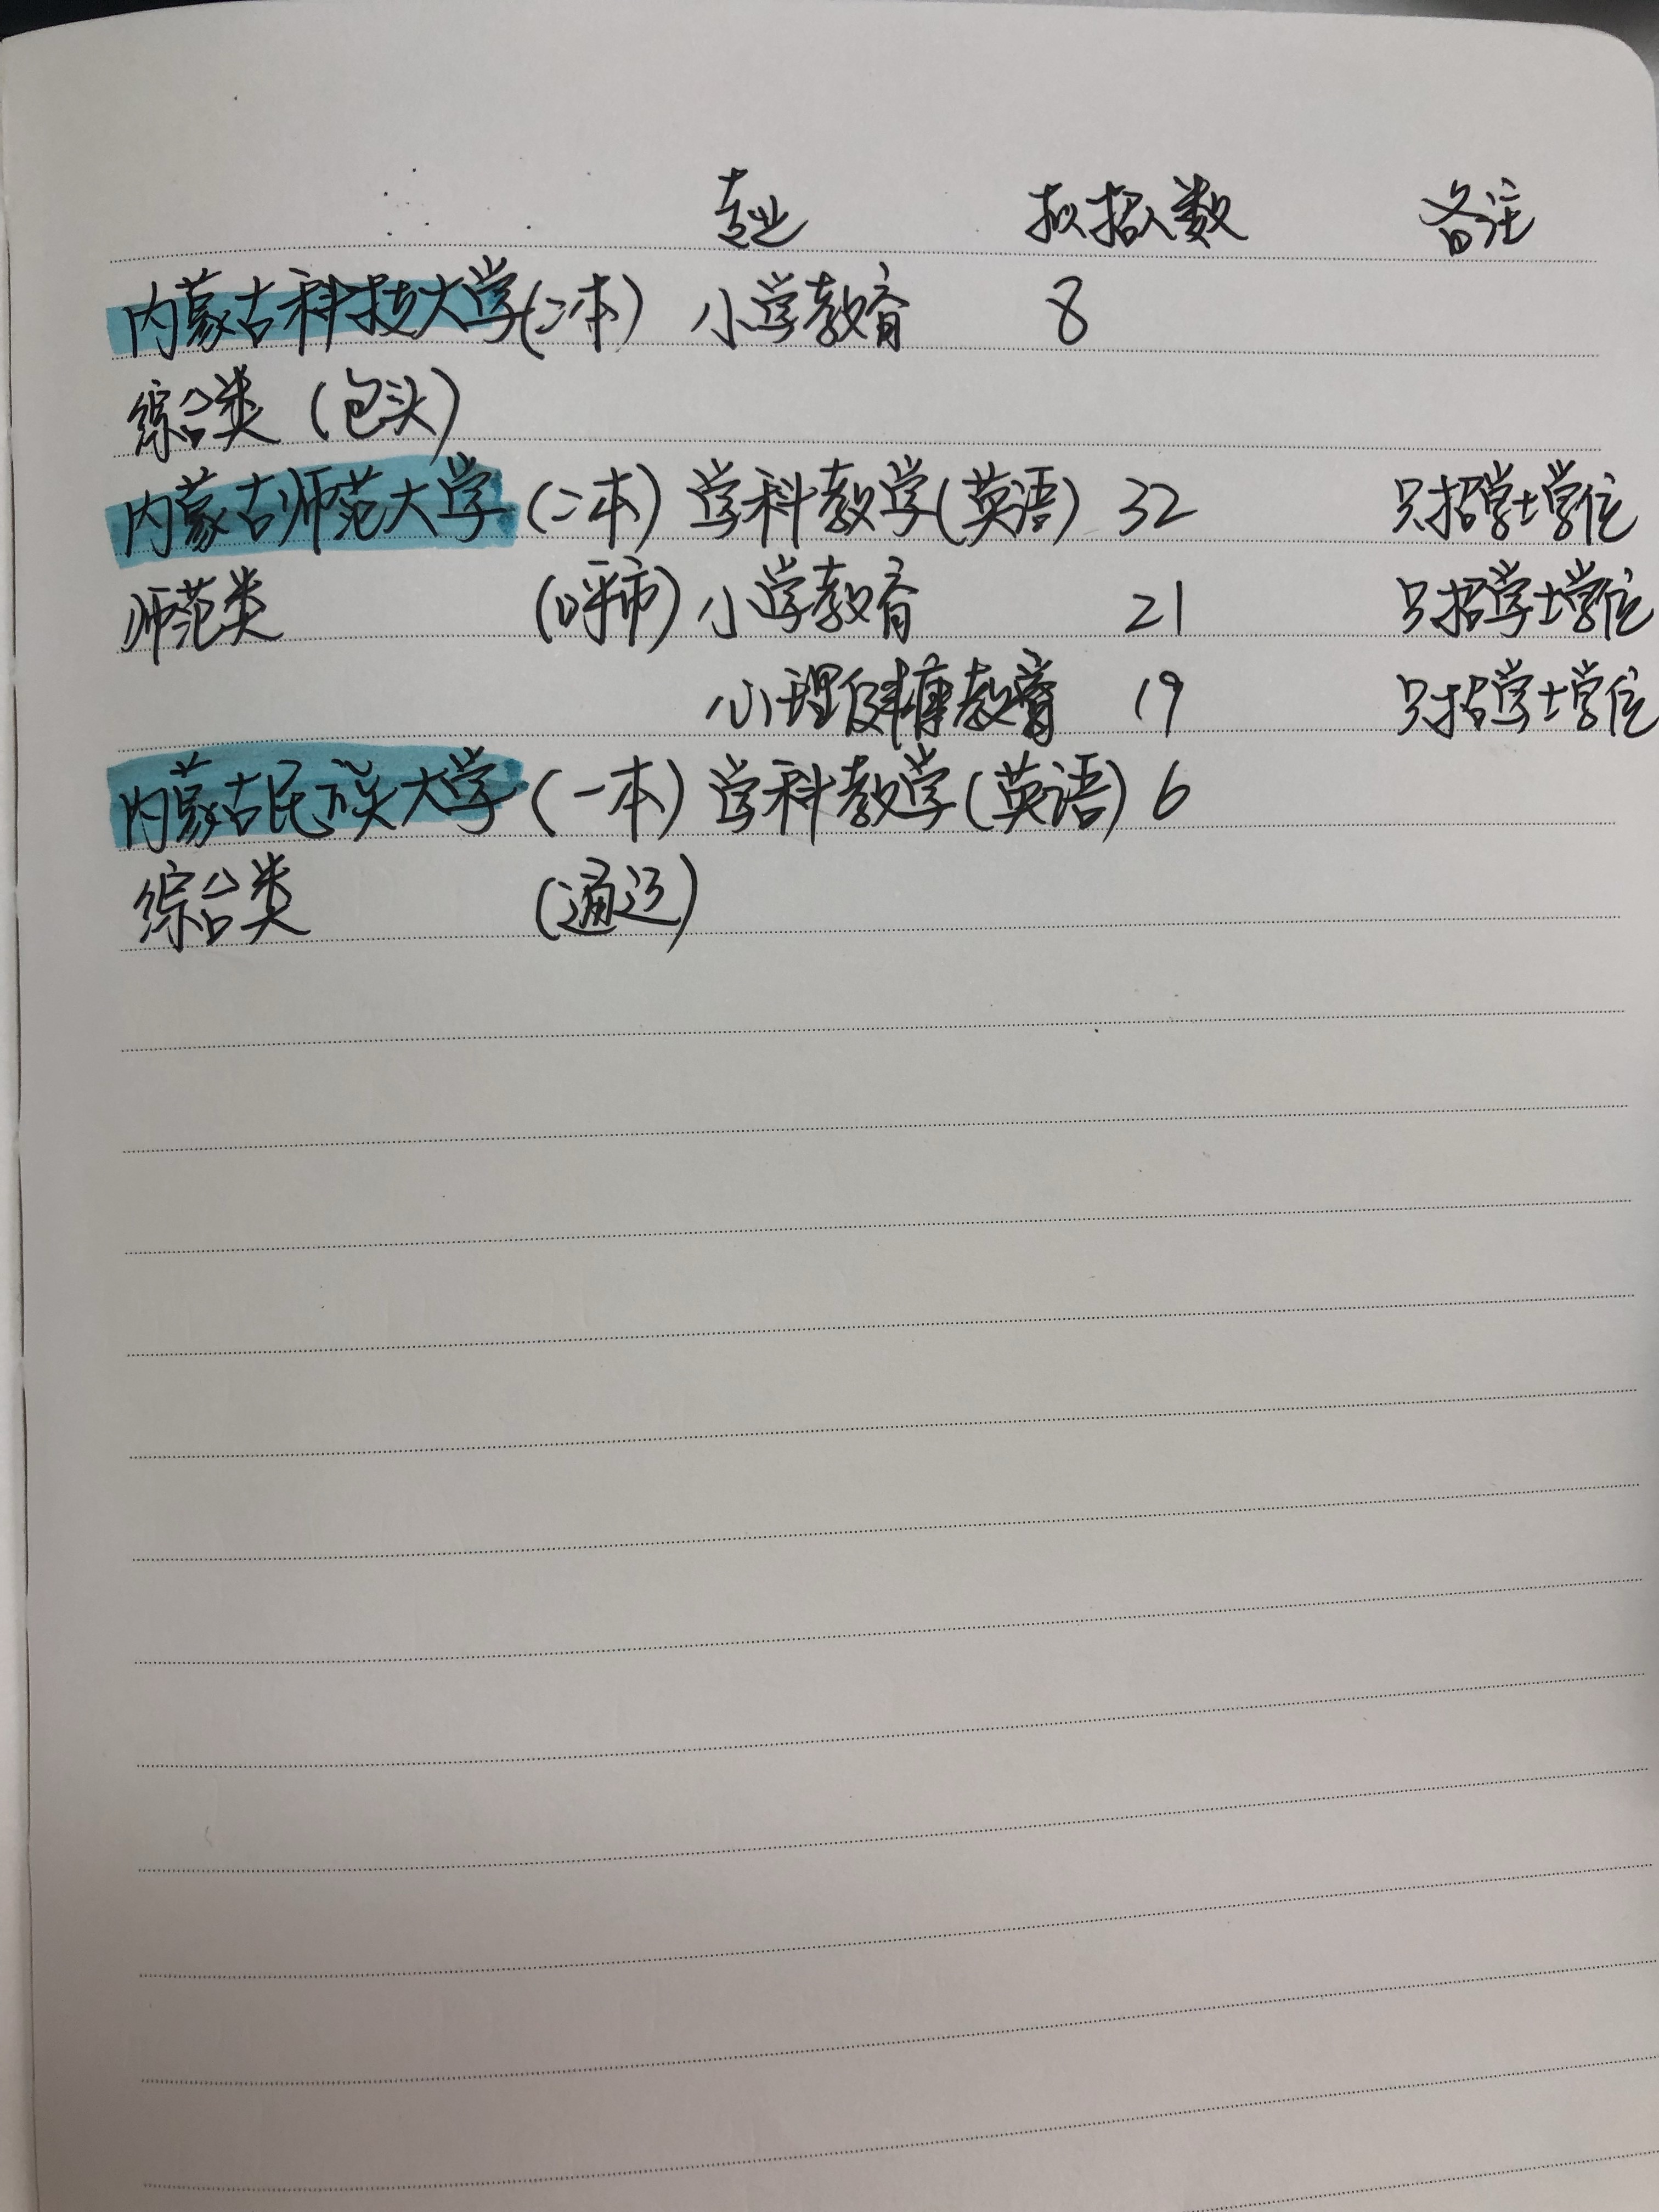 专业 拟招人数 备注
内蒙古科技大学(二本) 小学教育 8
综合类 (包头)
内蒙古师范大学 (二本) 学科教学(英语) 32 只招学士学位
师范类 (呼市) 小学教育 21 只招学士学位
心理健康教育 19 只招学士学位
内蒙古民族大学 (一本) 学科教学(英语) 6
综合类 (通辽)